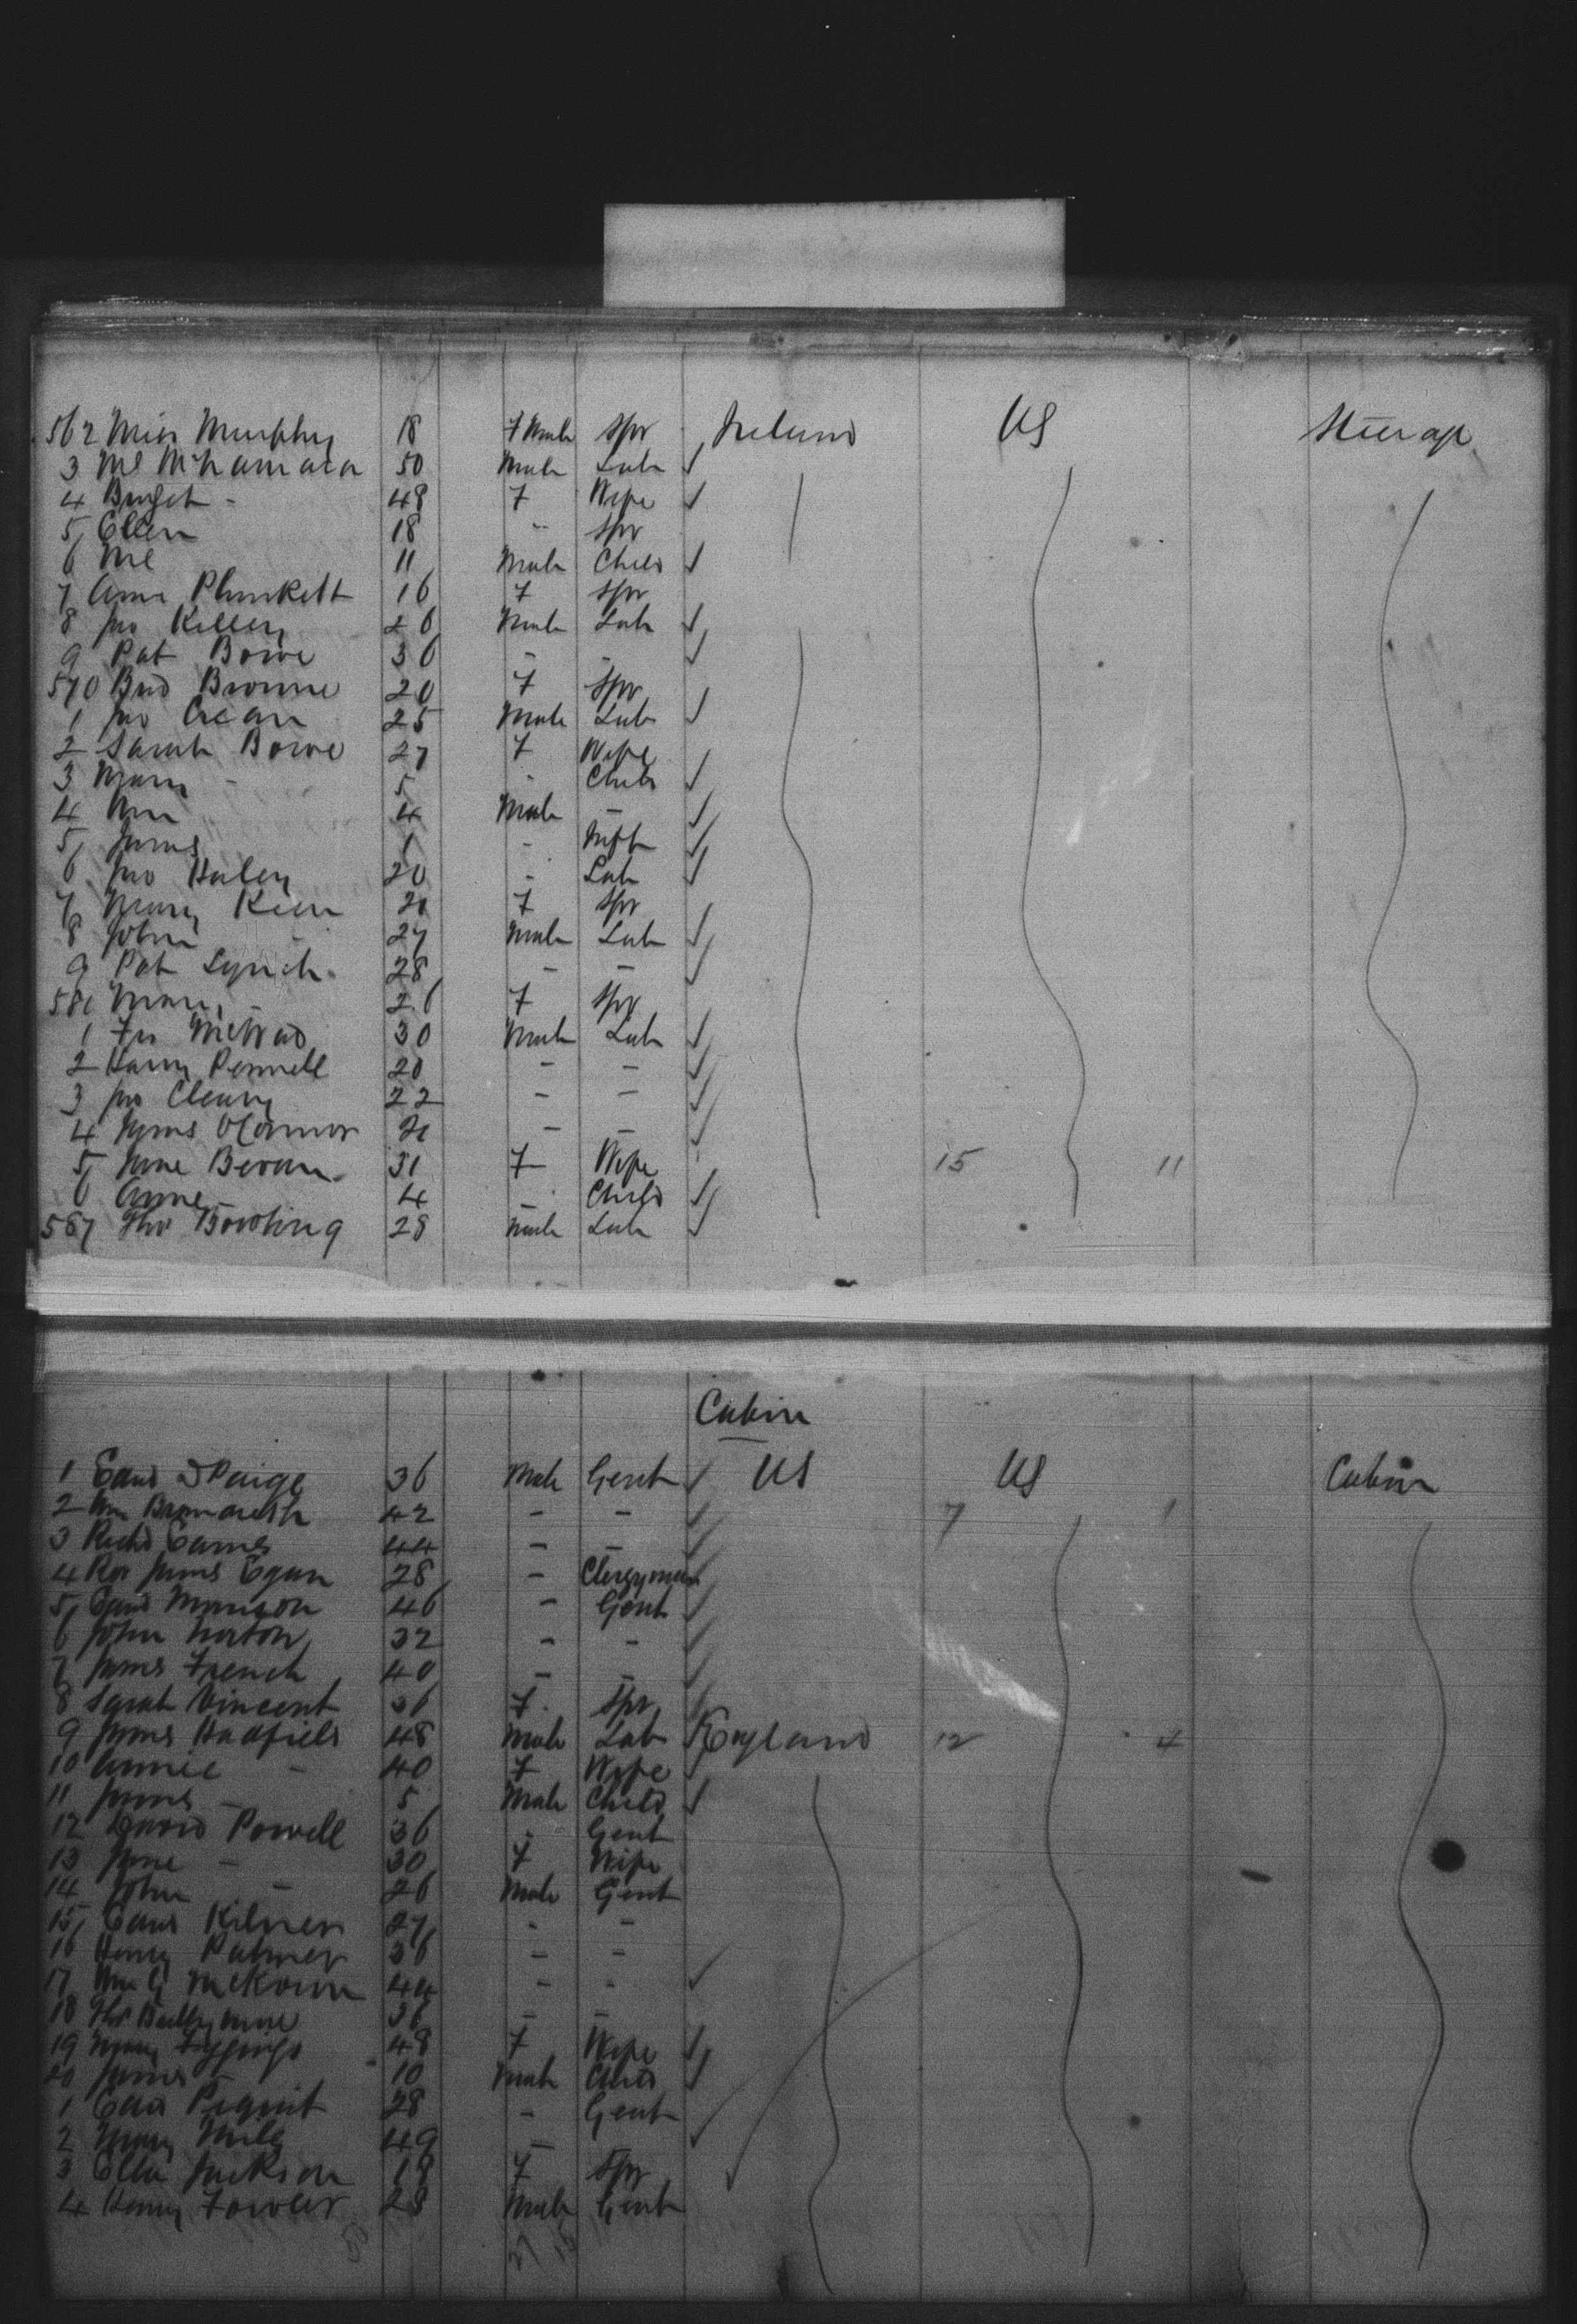 562 Miss Murphy 18 F Male Spr Ireland US Steerage
3 Ml McNamara 50 Male Lab
4 Bridget - 48 F Wife
5 Ellen 18 - Spr
6 Ml 11 Male Child
7 Anne Plunkett 16 F Spr
8 Jno Killery 26 Male Lab
9 Pat Bowe 36 - -
570 Brid Browne 20 F Spr
1 Jno Crean 25 Male Lab
2 Sarah Bowe 27 F Wife
3 Mary - 5 - Child
4 Wm 4 Male -
5 James 1 - Inft
6 Jno Haley 20 - Lab
7 Mary Keen 20 F Spr
8 John - 27 Male Lab
9 Pat Lynch 28 - -
580 Mary - 26 F Spr
1 Frs 30 Male Lab
2 Harry Pennell 20 - -
3 Jno Cleary 22 - -
4 James OConnor 21 - -
5 Jane Bevan 31 F Wife 15 11
6 Anne - 4 - Child
587 Tho Bowling 28 Male Lab
Cabin
1 Edwd D Paige 36 Male Gent US US Cabin
2 Wm 42 - - 7 1
3 Richd Eames 44 - -
4 Rev James Egan 28 - Clergyman
5 Edwd Manison 46 - Gent
6 John Norton 32 - -
7 James French 40 - -
8 Sarah Vincent 36 F Spr
9 James Hadfield 48 Male Lab England 12 4
10 Annie - 40 F Wife
11 James - 5 Male Child
12 David Powell 36 - Gent
13 Jane - 30 F Wife
14 John - 26 Male Gent
15 Edwd Kilner 27 - -
16 Henry Palmer 36 - -
17 Wm G McKown 44 - -
18 Tho Ballymune 36 - -
19 Mary Figgings 48 F Wife
20 James - 10 Male Child
1 Edwd 28 - Gent
2 49 -
3 Ella Jackson 18 F Spr
4 Henry Fowler 28 Male Gent